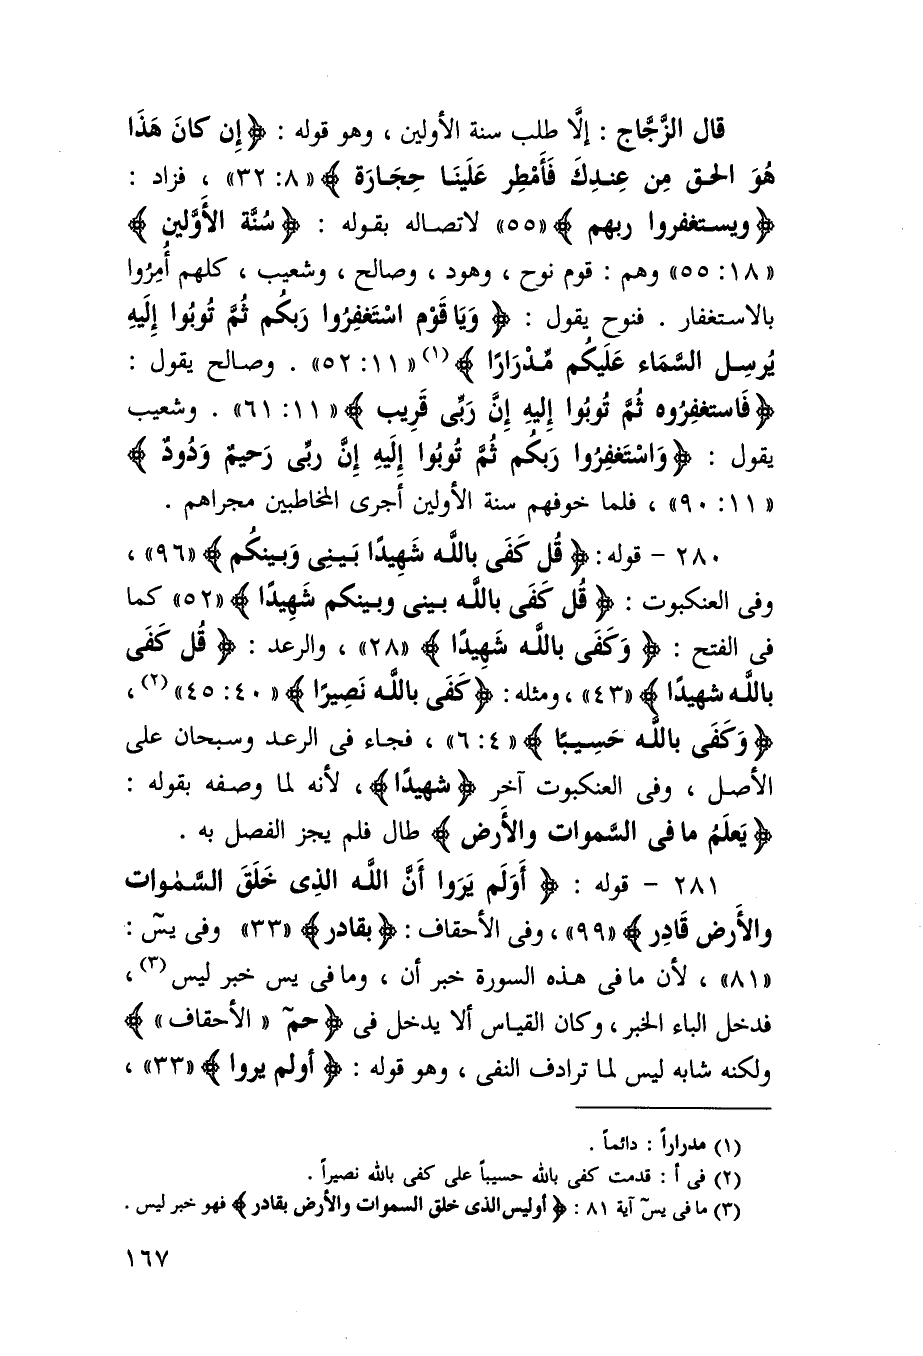 قال الزَّجَّاج : إلَّا طلب سنة الأولين ، وهو قوله : ﴿ إِن كانَ هَذَا
هُوَ الحق مِن عِندِكَ فَأَمْطِر عَلَينَا حِجَارَة ﴾ «٨: ٣٢» ، فزاد :
﴿ ويستغفروا ربهم ﴾ «٥٥» لاتصاله بقوله : ﴿ سُنَّة الأَوَّلين ﴾
«١٨: ٥٥» وهم : قوم نوح ، وهود ، وصالح ، وشعيب ، كلهم أُمِرُوا
بالاستغفار . فنوح يقول : ﴿ وَيَا قَوْم اسْتَغفِرُوا رَبكُم ثُمَّ تُوبُوا إِلَيهِ
يُرسِل السَّمَاء عَلَيكُم مِّدْرَارًا ﴾ (١) « ١١: ٥٢» . وصالح يقول :
﴿ فَاستغفِرُوه ثُمَّ تُوبُوا إِليهِ إِنَّ رَبِّى قَرِيب ﴾ « ١١: ٦١» . وشعيب
يقول : ﴿ وَاسْتَغفِرُوا رَبكُم ثُمَّ تُوبُوا إِلَيهِ إِنَّ ربِّى رَحيمٌ وَدُودٌ ﴾
« ١١: ٩٠» ، فلما خوفهم سنة الأولين أجرى المخاطبين مجراهم .
٢٨٠ - قوله : ﴿ قُل كَفَى باللَّه شَهِيدًا بَينِى وَبينكُم ﴾ «٩٦» ،
وفى العنكبوت : ﴿ قُل كَفَى باللَّه بينى وبينكم شَهِيدًا ﴾ «٥٢» كما
فى الفتح : ﴿ وَكَفَى باللَّه شَهِيدًا ﴾ «٢٨» ، والرعد : ﴿ قُل كَفَى
باللَّه شهيدًا ﴾ «٤٣» ، ومثله : ﴿ كَفَى باللَّه نَصِيرًا ﴾ « ٤: ٤٥» (٢) ،
﴿ وَكَفَى باللَّه حَسِيبًا ﴾ « ٤: ٦» ، فجاء فى الرعد وسبحان على
الأصل ، وفى العنكبوت آخر ﴿ شهيدًا ﴾ ، لأنه لما وصفه بقوله :
﴿ يَعلَمُ ما فى السَّموات والأَرض ﴾ طال فلم يجز الفصل به .
٢٨١ - قوله : ﴿ أَوَلَم يَرَوا أَنَّ اللَّه الذِى خَلَقَ السَّمٰوات
والأَرض قَادِر ﴾ «٩٩» ، وفى الأحقاف : ﴿ بقادر ﴾ «٣٣» وفى يسٓ :
«٨١» ، لأن ما فى هذه السورة خبر أن ، وما فى يس خبر ليس (٣) ،
فدخل الباء الخبر ، وكان القياس ألا يدخل فى ﴿ حمٓ « الأحقاف » ﴾
ولكنه شابه ليس لما ترادف النفى ، وهو قوله : ﴿ أولم يروا ﴾ «٣٣» ،
(١) مدراراً : دائماً .
(٢) فى أ : قدمت كفى بالله حسيباً على كفى بالله نصيراً .
(٣) ما فى يسٓ آية ٨١ : ﴿ أوليس الذى خلق السموات والأرض بقادر ﴾ فهو خبر ليس .
١٦٧